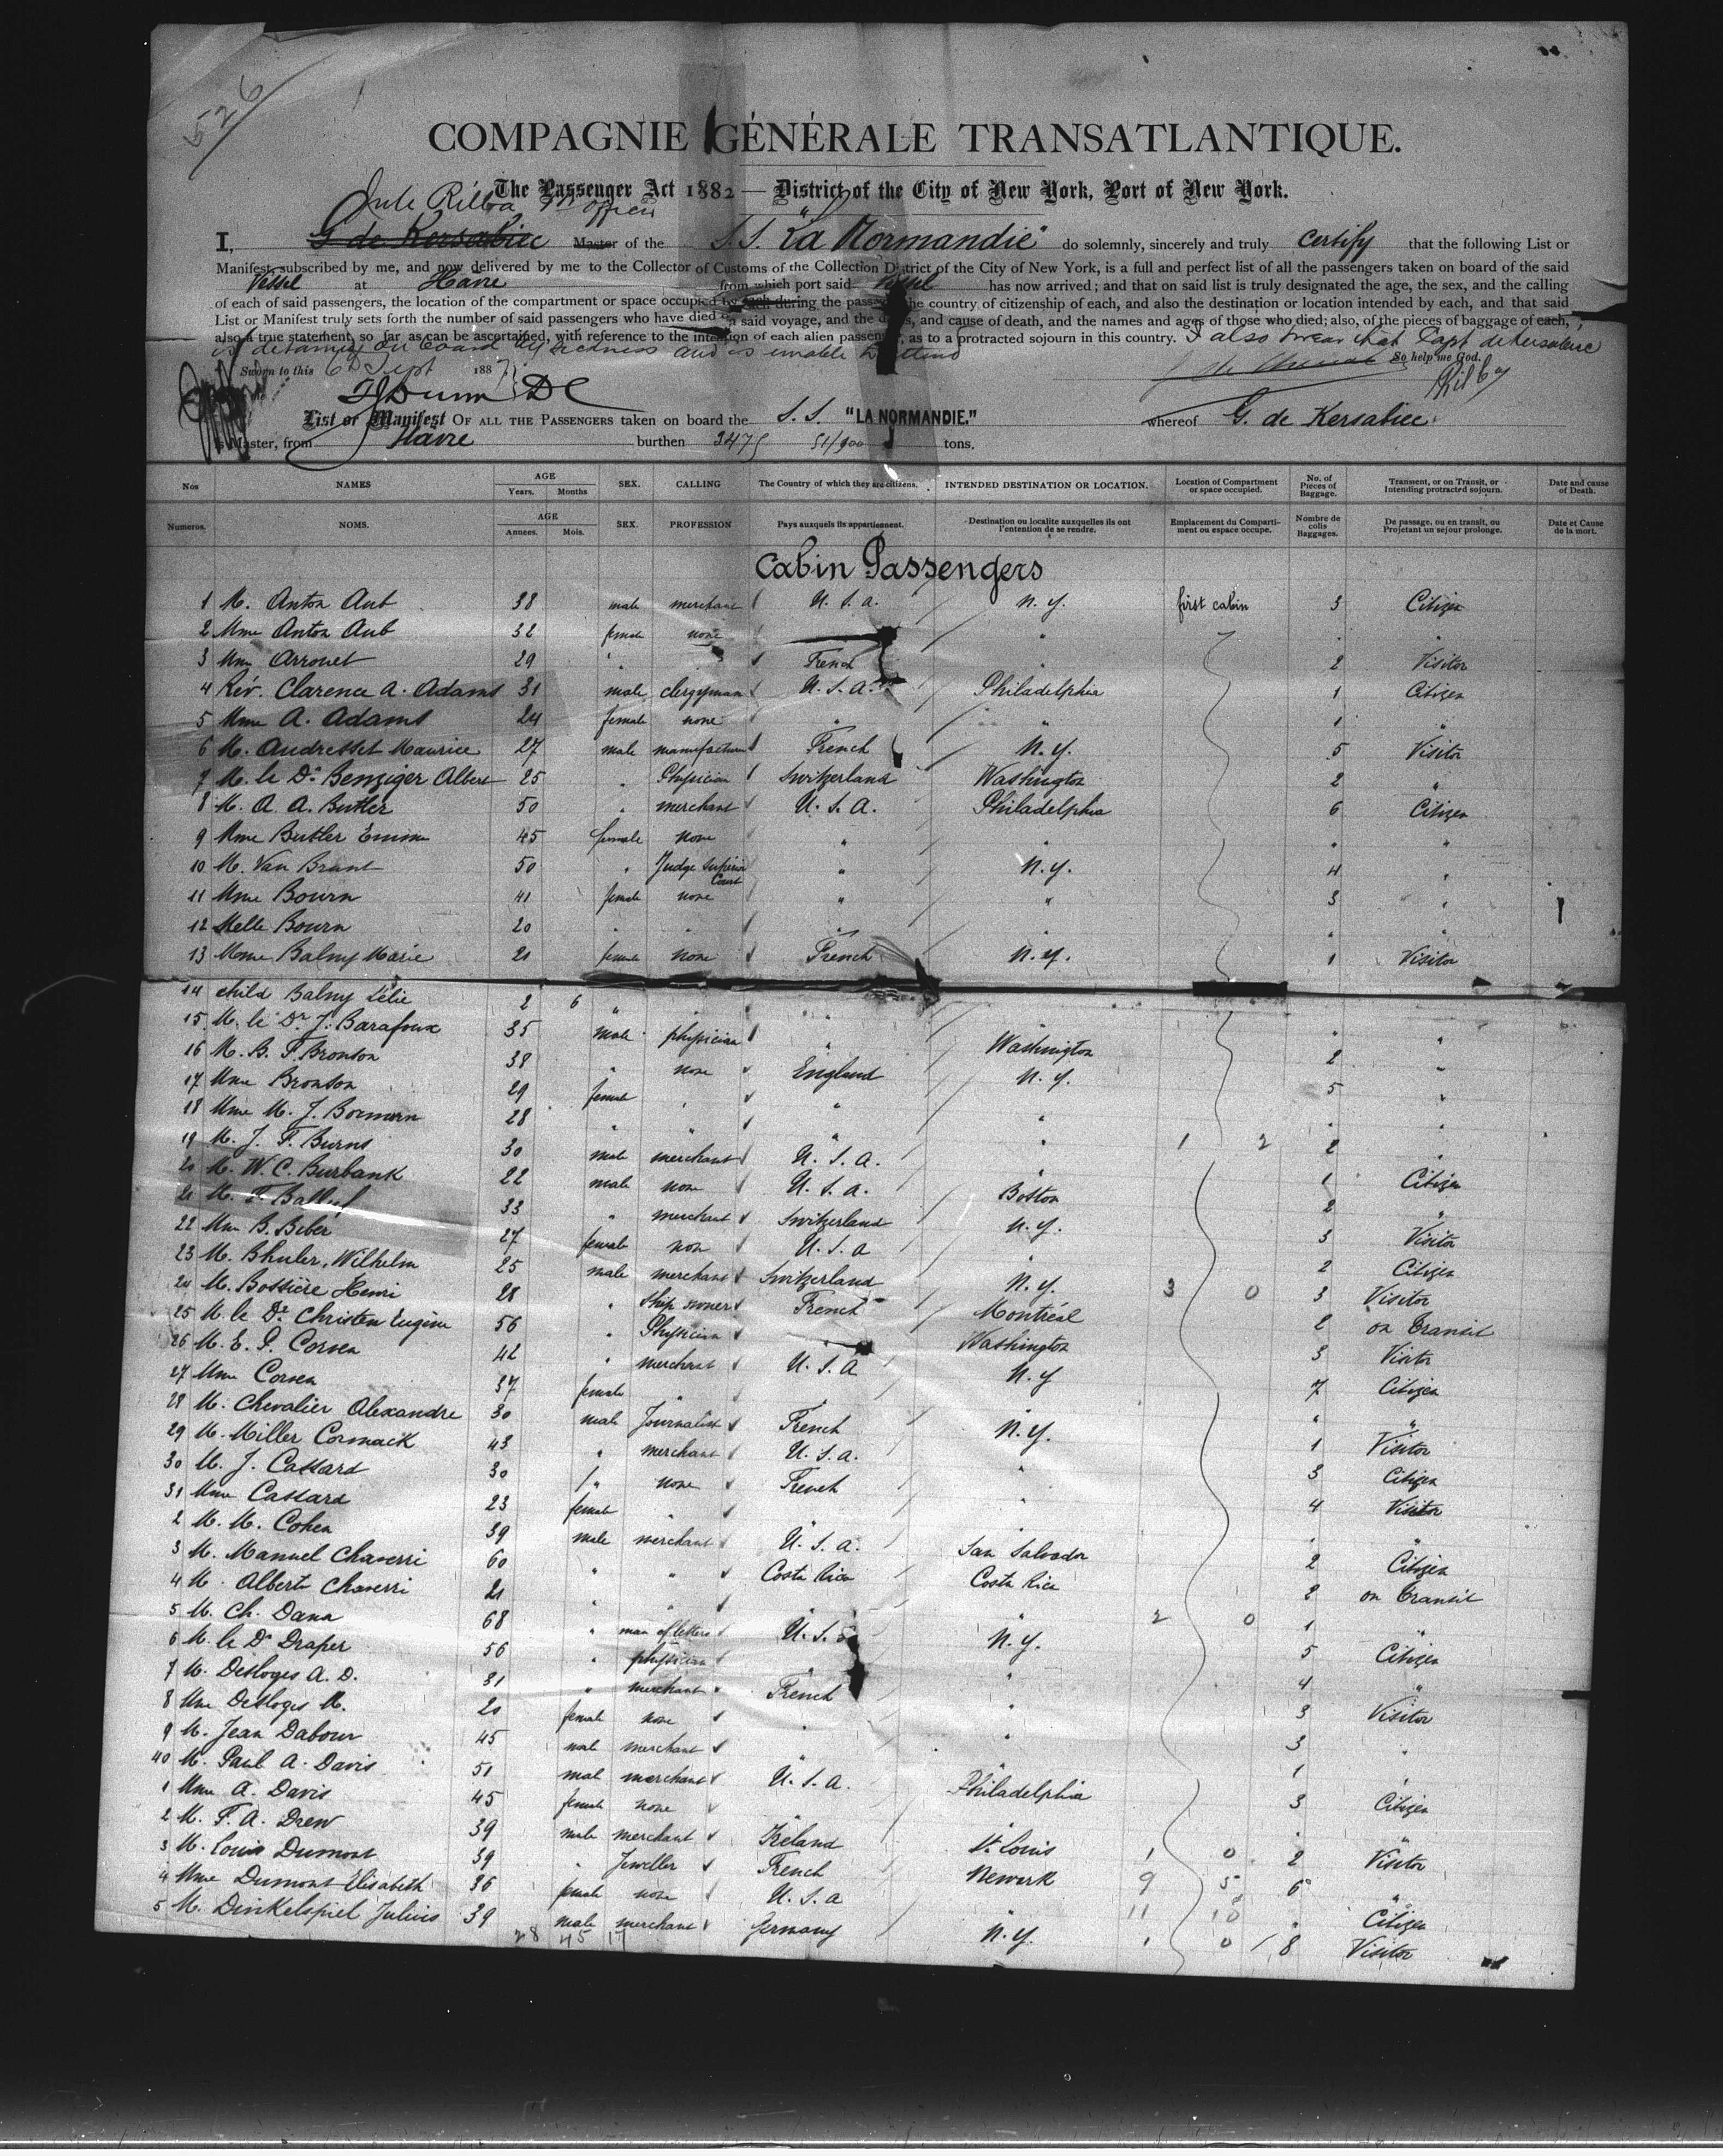 526
COMPAGNIE GÉNÉRALE TRANSATLANTIQUE.
The Passenger Act 1882 — District of the City of New York, Port of New York.
I, G de Kersabiec Master of the S.S. "La Normandie" do solemnly, sincerely and truly certify that the following List or
Manifest, subscribed by me, and now delivered by me to the Collector of Customs of the Collection District of the City of New York, is a full and perfect list of all the passengers taken on board of the said
Vessel at Havre from which port said Vessel has now arrived; and that on said list is truly designated the age, the sex, and the calling
of each of said passengers, the location of the compartment or space occupied by each during the passage the country of citizenship of each, and also the destination or location intended by each, and that said
List or Manifest truly sets forth the number of said passengers who have died on said voyage, and the dates, and cause of death, and the names and ages of those who died; also, of the pieces of baggage of each,
also a true statement, so far as can be ascertained, with reference to the intention of each alien passenger, as to a protracted sojourn in this country. I also swear that Capt de Kersabiec
is detained on board by sickness and is unable to attend
So help me God.
Sworn to this 6th Sept 188
List or Manifest OF ALL THE PASSENGERS taken on board the S.S. "LA NORMANDIE." whereof G. de Kersabiec
is Master, from Havre burthen 3475 51/100 tons.
Nos NAMES AGE Years. Months SEX. CALLING The Country of which they are citizens. INTENDED DESTINATION OR LOCATION. Location of Compartment or space occupied. No. of Pieces of Baggage. Transient, or on Transit, or Intending protracted sojourn. Date and cause of Death.
Numeros. NOMS. AGE Annees. Mois. SEX. PROFESSION Pays auxquels ils appartiennent. Destination ou localite auxquelles ils ont l'entention de se rendre. Emplacement du Compartiment ou espace occupe. Nombre de colis Baggages. De passage, ou en transit, ou Projetant un sejour prolonge. Date et Cause de la mort.
Cabin Passengers
1 M. Anton Aub 38 male merchant U.S.A. N.Y. first cabin 3 Citizen
2 Mme Anton Aub 32 female none " "
3 Mme Arrouet 29 " " French " 2 Visitor
4 Rév. Clarence A. Adams 31 male clergyman U.S.A. Philadelphia 1 Citizen
5 Mme A. Adams 24 female none " " 1 "
6 M. Audresset Maurice 27 male manufacturer French N.Y. 5 Visitor
7 M. le Dr Benziger Albert 25 " Physician Switzerland Washington 2 "
8 M. A. A. Butler 50 " merchant U.S.A. Philadelphia 6 Citizen
9 Mme Butler Emma 45 female none " " " "
10 M. Van Brunt 50 " Judge Superior Court " N.Y. 4 "
11 Mme Bourn 41 female none " " 3 "
12 Melle Bourn 20 " " " " " "
13 Mme Balny Marie 21 female none French N.Y. 1 Visitor
14 child Balny Lélie 2 6 " " " "
15 M. le Dr J. Barafoux 35 male physician " Washington " "
16 M. B. F. Bronson 38 " none England N.Y. 2 "
17 Mme Bronson 29 female " " " 5 "
18 Mme M. J. Bormann 28 " " " " " "
19 M. J. F. Burns 30 male merchant U.S.A. " 1 2 2 "
20 M. W. C. Burbank 22 male none U.S.A. Boston 1 Citizen
21 M. F. 33 " merchant Switzerland N.Y. 2 "
22 Mme B. Biber 27 female none U.S.A " 3 Visitor
23 M. Bhuler, Wilhelm 25 male merchant Switzerland N.Y. 2 Citizen
24 M. Bossière Henri 28 " Ship owner French Montréal 3 0 3 Visitor
25 M. le Dr Christen Eugène 56 " Physician " Washington 2 on Transit
26 M. E. P. Corsen 42 " merchant U.S.A N.Y 3 Visitor
27 Mme Corsen 37 female " " 7 Citizen
28 M. Chevalier Alexandre 30 male Journalist French N.Y. " "
29 M. Miller Cormack 43 " merchant U.S.A. " 1 Visitor
30 M. J. Cassard 30 " none French " 3 Citizen
31 Mme Cassard 23 female " " " 4 Visitor
2 M. M. Cohen 39 male merchant U.S.A. San Salvador " "
3 M. Manuel Chaverri 60 " " Costa Rica Costa Rica 2 Citizen
4 M. Albert Chaverri 21 " " " " 2 on Transit
5 M. Ch. Dana 68 " man of letters U.S. N.Y. 2 0 1 "
6 M. le Dr Draper 56 " physician " " 5 Citizen
7 M. Desloges A. D. 31 " merchant French " 4 "
8 Mme Desloges M. 20 female none " " 3 Visitor
9 M. Jean Dabour 45 male merchant " " 3 "
40 M. Paul A. Davis 51 male merchant U.S.A. Philadelphia 1 "
1 Mme A. Davis 45 female none " " 3 Citizen
2 M. F. A. Drew 39 male merchant Ireland St. Louis 1 0 " "
3 M. Louis Dumont 39 " Jeweller French Newark 9 5 2 Visitor
4 Mme Dumont Elisabeth 36 female none U.S.A " 11 10 6 "
5 M. Dinkelspiel Julius 39 male merchant Germany N.Y. 1 0 " Citizen
8 Visitor
28 45 17